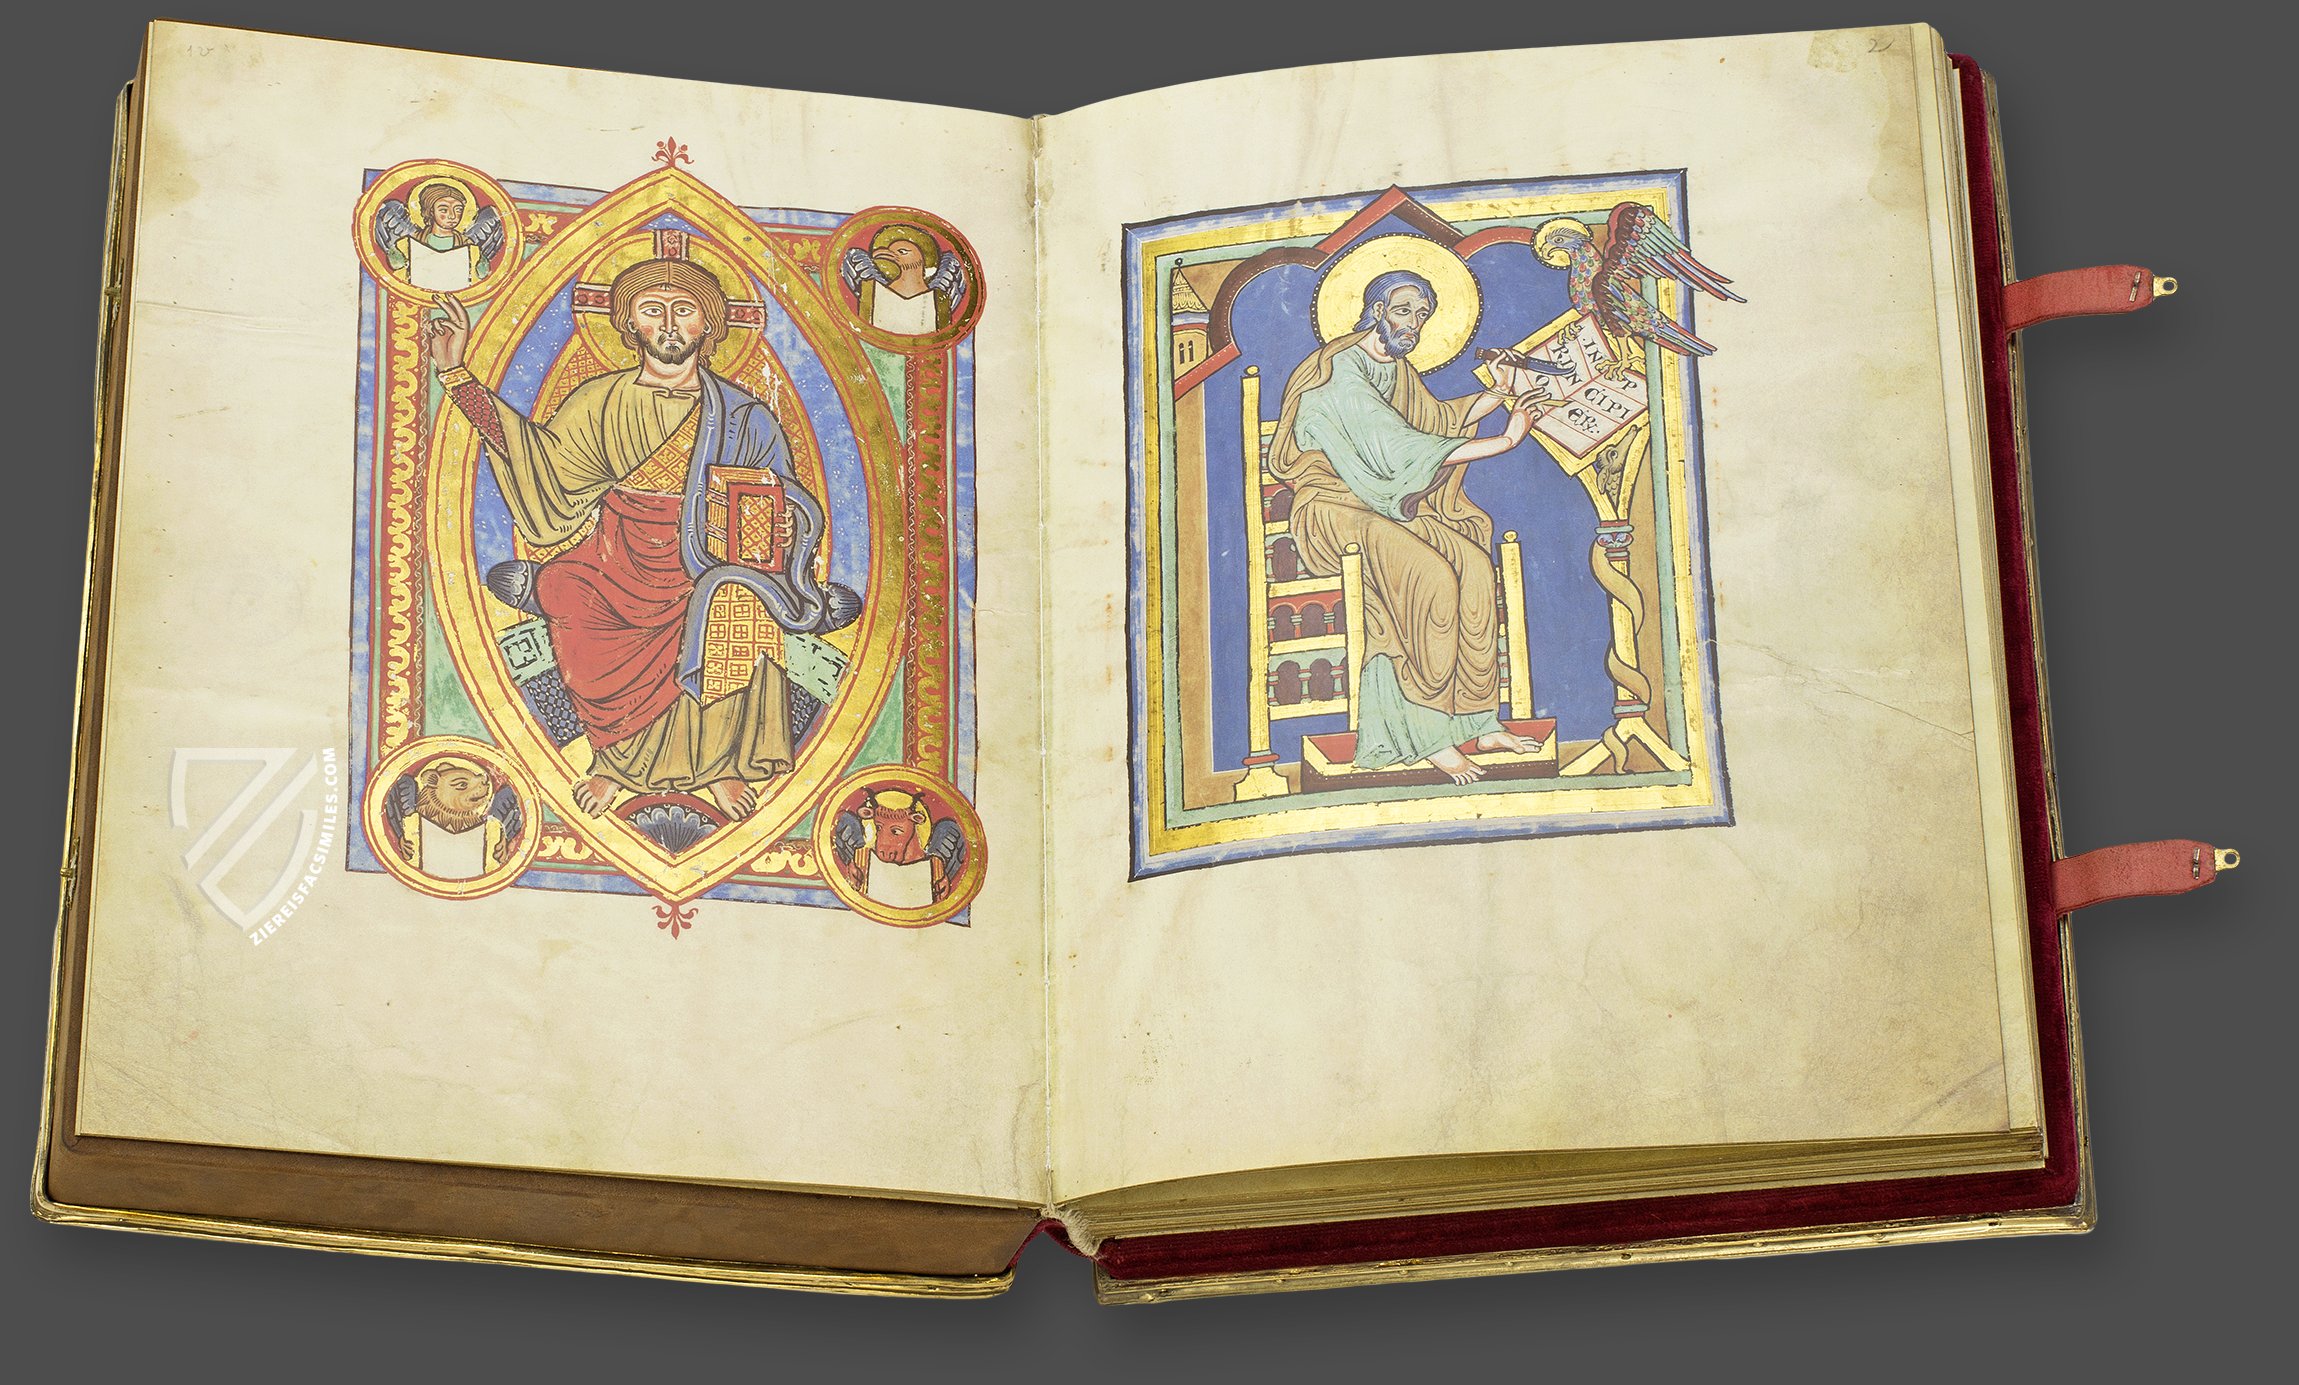 1v
2
·IN· P
RIN CIPI
O
ZIEREISFACSIMILES.COM